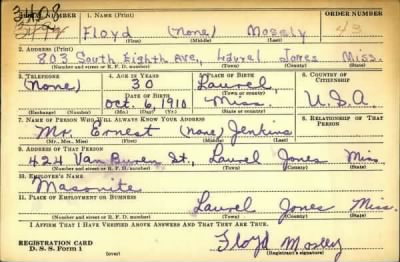 SERIAL NUMBER 1. NAME (Print) ORDER NUMBER
3408
Floyd (none) Mosely 43
(First) (Middle) (Last)
2. ADDRESS (Print)
803 South Eighth Ave, Laurel Jones Miss.
(Number and street or R. F. D. number) (Town) (County) (State)
3. TELEPHONE 4. AGE IN YEARS 5. PLACE OF BIRTH 6. COUNTRY OF CITIZENSHIP
(None) 30 Laurel
DATE OF BIRTH (Town or county)
Oct. 6, 1910 Miss. U.S.A.
(Exchange) (Number) (Mo.) (Day) (Yr.) (State or country)
7. NAME OF PERSON WHO WILL ALWAYS KNOW YOUR ADDRESS 8. RELATIONSHIP OF THAT PERSON
Mr. Ernest (none) Jenkins
(Mr., Mrs., Miss) (First) (Middle) (Last)
9. ADDRESS OF THAT PERSON
424 Van Buren St., Laurel Jones Miss
(Number and street or R. F. D. number) (Town) (County) (State)
10. EMPLOYER'S NAME
Masonite
11. PLACE OF EMPLOYMENT OR BUSINESS
Laurel Jones Miss.
(Number and street or R. F. D. number) (Town) (County) (State)
I AFFIRM THAT I HAVE VERIFIED ABOVE ANSWERS AND THAT THEY ARE TRUE.
REGISTRATION CARD
D. S. S. Form 1 (over) Floyd Mosley
(Registrant's signature)